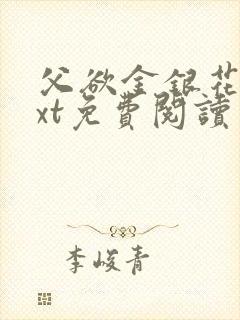 父欲金银花
xt免費閱讀
李峻青